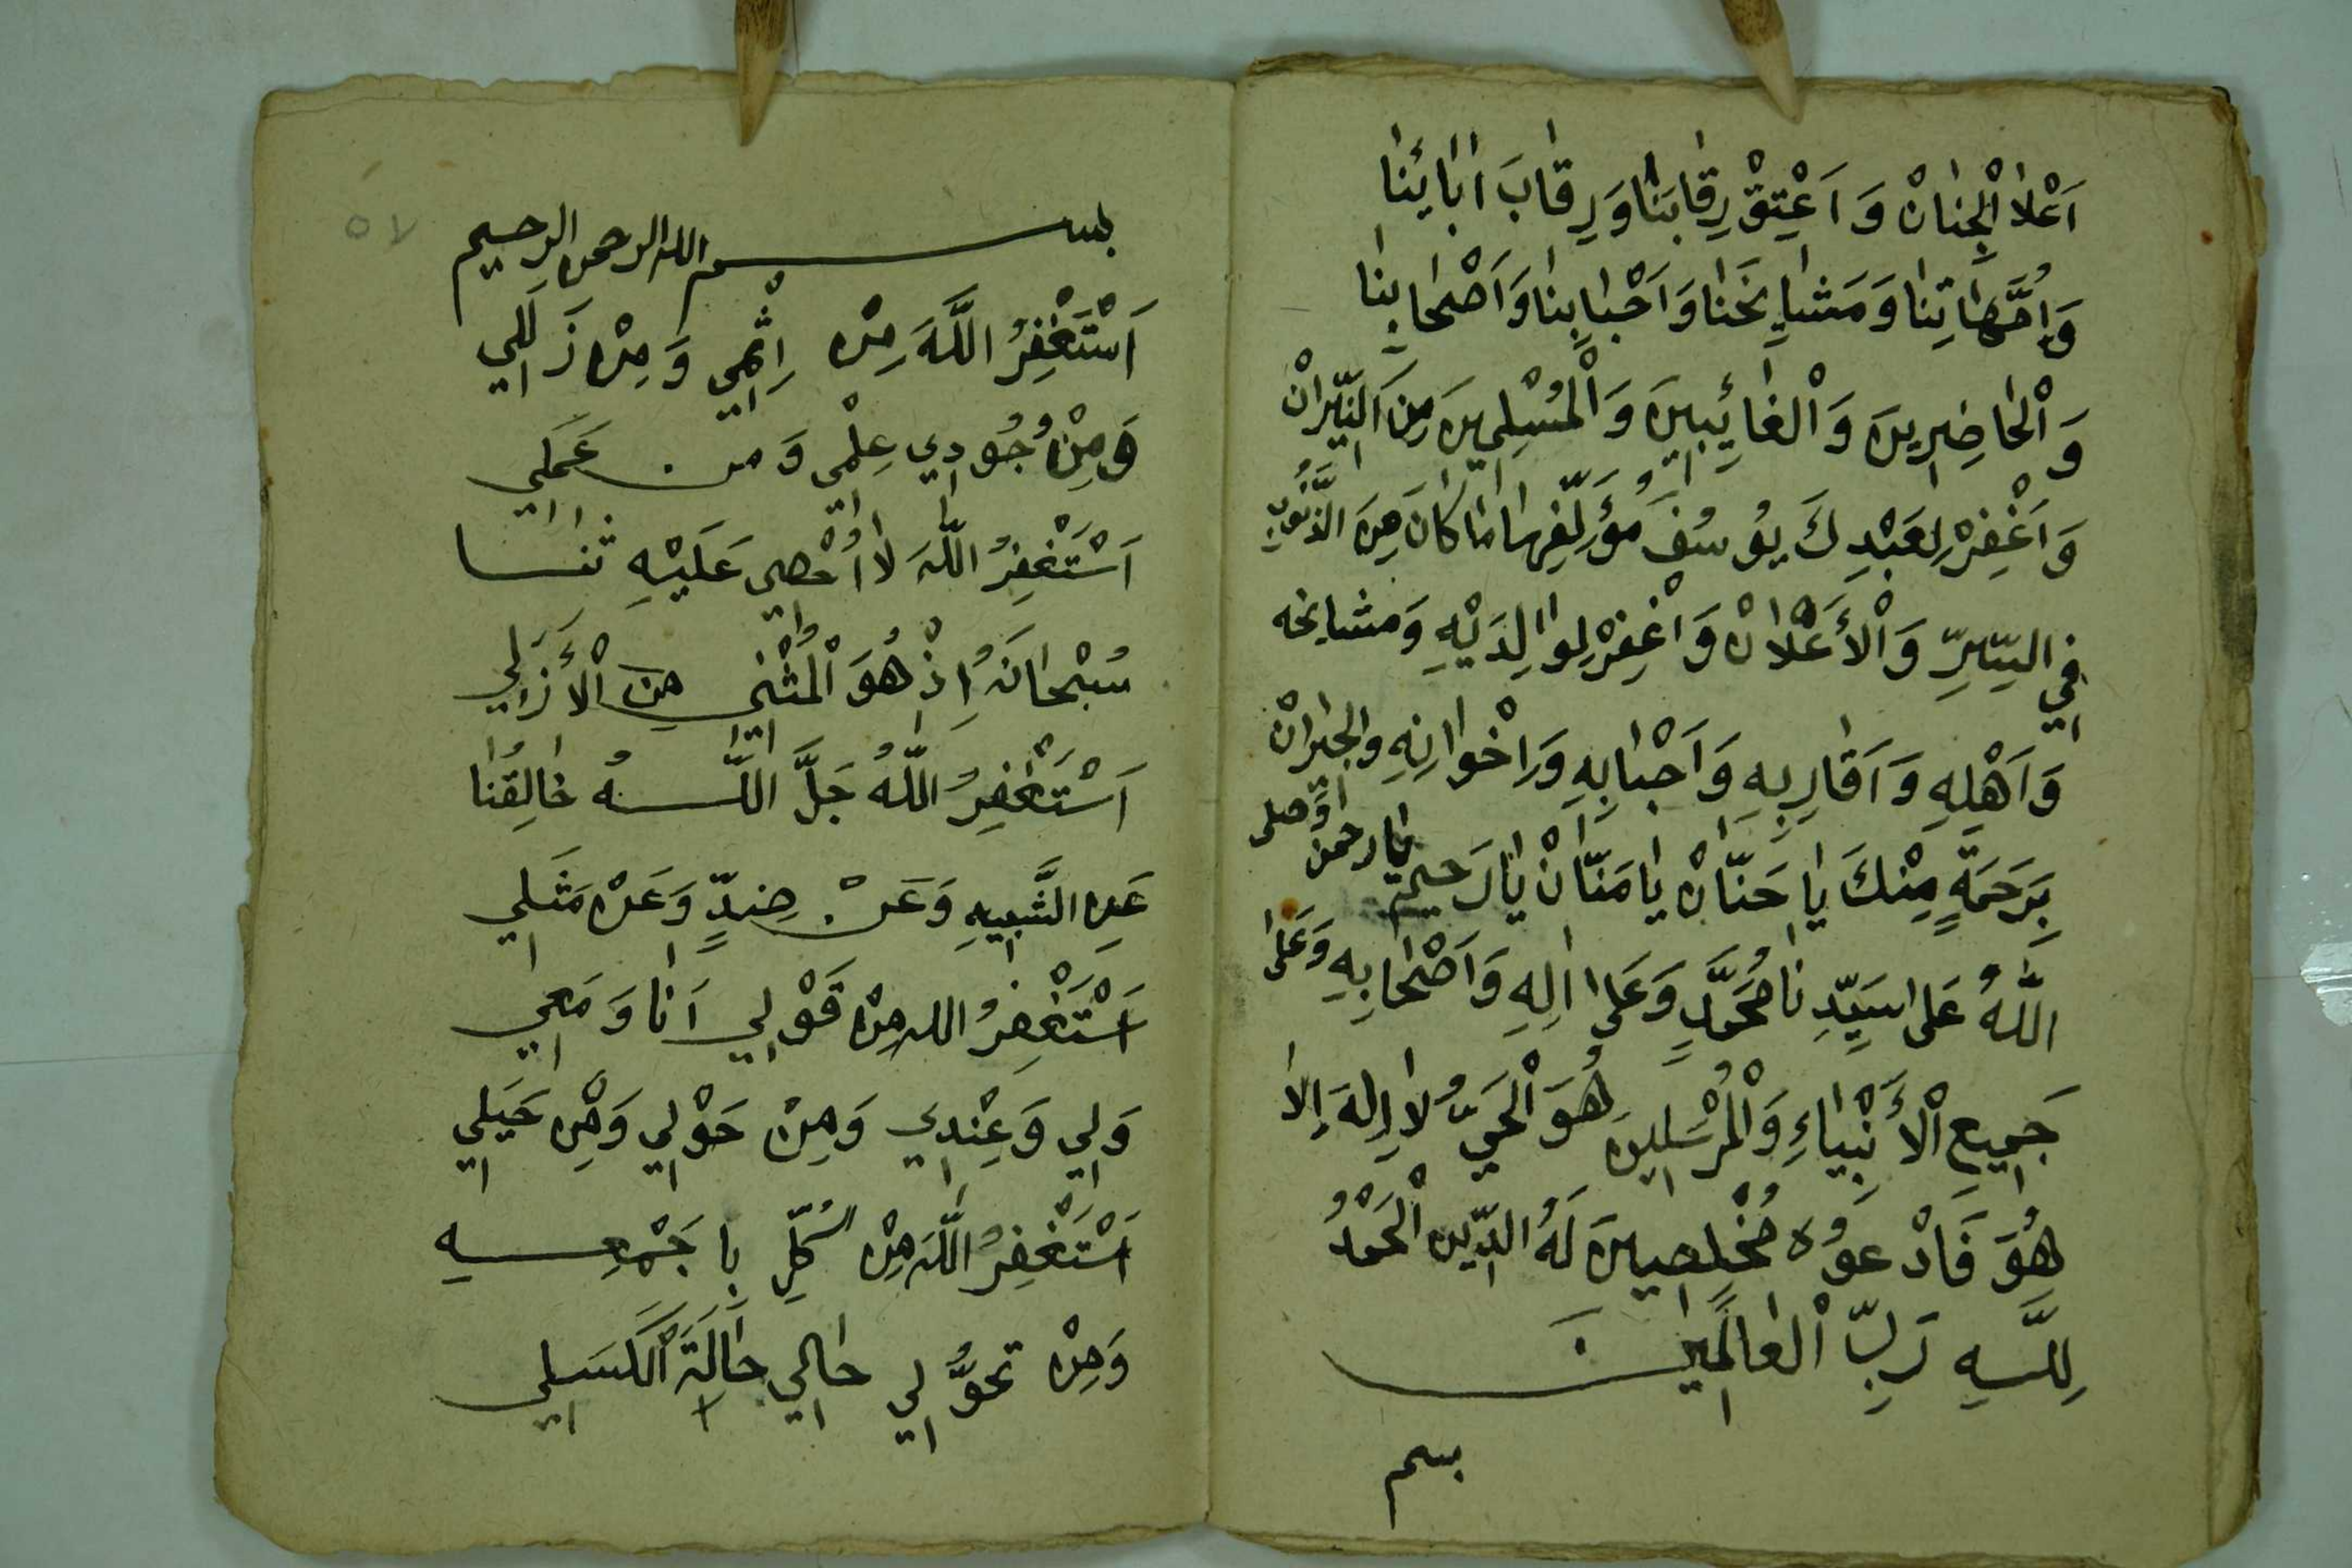 اَعْلَا الْجِنَانْ وَ اَعْتِقْ رِقَابَنَا وَ رِقَابَ اٰبَائِنَا
وَاُمَّهَاتِنَا وَ مَشَايِخَنَا وَ اَحْبَابِنَا وَ اَصْحَابِنَا
وَ الْحَاضِرِينَ وَ الْغَائِبِينَ وَ الْمُسْلِمِينَ مِنَ النِّيرَانْ
وَ اغْفِرْ لِعَبْدِكَ يُوسُفَ مُؤَلِّفِهَا مَا كَانَ مِنَ الذُّنُوبِ
فِي السِّرِّ وَ الْأَعْلَانْ وَ اغْفِرْ لِوَالِدَيْهِ وَ مشايخه
وَ اَهْلِهِ وَ اَقَارِبِهِ وَ اَحْبَابِهِ وَ اِخْوَانِهِ والجيرانْ
بِرَحْمَةٍ مِنْكَ يَا حَنَّانْ يَا مَنَّانْ يَا رَحيم يا رحمن وصلى
اللَّهُ عَلَى سَيِّدِنَا مُحَمَّدٍ وَ عَلَى اٰلِهِ وَ اَصْحَابِهِ وَ عَلَى
جَمِيعِ الْأَنْبِيَاءِ وَ الْمُرْسَلِينَ هُوَ الْحَيُّ لَا اِلٰهَ اِلَّا
هُوَ فَادْعُوهُ مُخْلِصِينَ لَهُ الدِّينَ الْحَمْدُ
لِلَّهِ رَبِّ الْعَالَمِينَ
بسم
٥٧
بسم الله الرحمن الرحيم
اَسْتَغْفِرُ اللَّهَ مِنْ اِثْمِي وَ مِنْ زَلَلِي
وَ مِنْ وُجُودِي عِلْمِي وَ من عَمَلِي
اَسْتَغْفِرُ اللَّهَ لَا اُحْصِي عَلَيْهِ ثنا
سُبْحَانَهُ اِذْ هُوَ الْمُثْنِي مِنَ الْأَزَلِي
اَسْتَغْفِرُ اللَّهَ جَلَّ اللَّهُ خَالِقُنَا
عَنِ الشَّبِيهِ وَ عَنْ ضِدٍّ وَ عَنْ مَثَلِي
اَسْتَغْفِرُ الله مِنْ قَوْلِي اَنَا وَ مَعِي
وَلِي وَ عِنْدِي وَ مِنْ حَوْلِي وَ مِنْ حَيَلِي
اَسْتَغْفِرُ اللَّهَ مِنْ كُلِّ بِاجَمْعِهِ
وَ مِنْ تَحَوُّلِي حَالِي حَالَةَ الْكَسَلِي